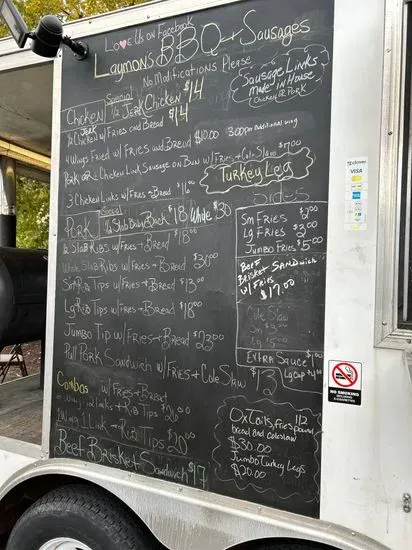 Love Us on Facebook
Laymon's BBQ + Sausages
No Modifications Please
Sausage Links
made in House
Chicken or Pork
Chicken Special 1/2 Jerk Chicken $14
1/2 Jerk Chicken w/ Fries and Bread $14
4 Wings Fried w/ Fries and Bread $10.00 300 per additional wing
Pork or Chicken Link Sausage on Bun w/ Fries + Cole Slaw $7.00
3 Chicken Links w/ Fries + Bread
Turkey Leg
Special
Pork 1/2 Slab Baby Back $18/Whole $30
1/2 Slab Ribs w/ Fries + Bread $18.00
Whole Slab Ribs w/ Fries + Bread $30.00
Sm Rib Tips w/ Fries + Bread $13.00
Lg Rib Tips w/ Fries + Bread $18.00
Jumbo Tip w/ Fries + Bread $23.00
Pull Pork Sandwich w/ Fries + Cole Slaw $13
Combos w/ Fries + Bread
Links + Rib Tips $20.00
1 Link + Rib Tips $20.00
Beef Brisket Sandwich $17
Sides
Sm Fries $2.00
Lg Fries $3.00
Jumbo Fries $5.00
Beef
Brisket Sandwich
w/ Fries
$17.00
Cole Slaw
Sm $3.00
Lg $5.00
Extra Sauce
Lg Cup
OxTails, fries
bread and coleslaw
$30.00
Jumbo Turkey Legs
$20.00
clover
VISA
NO SMOKING